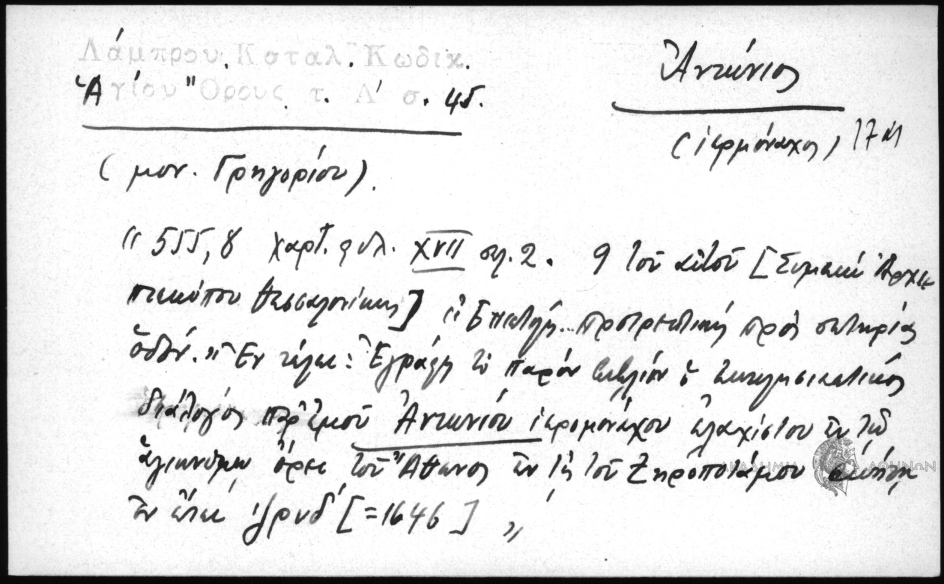 Λάμπρου. Καταλ. Κωδικ.
Ἁγίου Ὄρους τ. Α' σ. 45.
Ἀντώνιος
(ἱερμόναχος) 17 αι
(μον. Γρηγορίου).
" 555,8 χαρτ. φυλ. XVII σελ. 2. 9 τοῦ αὐτοῦ [Συμεὼν Ἀρχιε
πισκόπου Θεσσαλονίκης] " Ἐπιστολὴ.. προτρεπτικὴ πρὸς σωτηρίας
ὁδόν. " Ἐν τέλει: Ἐγράφη τὸ παρὸν βιβλίον ὁ ἐκκλησιαστικὸς
διάλογος παρ' ἐμοῦ Ἀντωνίου ἱερομονάχου ἐλαχίστου ἐν τῷ
ἁγιωνύμῳ ὄρει τοῦ Ἄθωνος ἐν τῇ τοῦ Ξηροποτάμου
ἐν ἔτει ͵ζρνδ [=1646] "